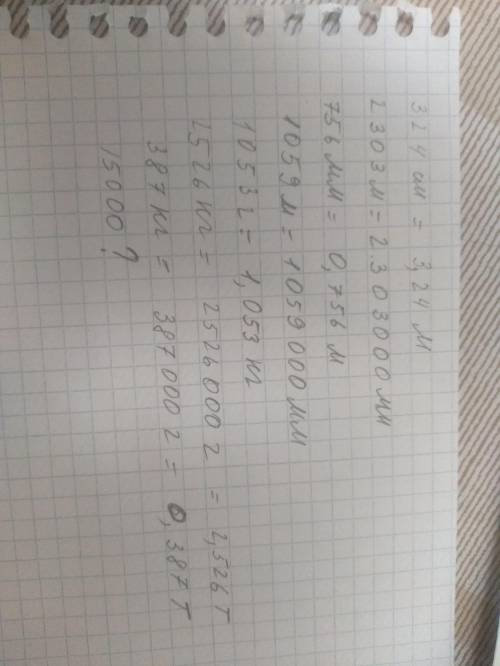 324 см = 3,24 м
2303 м = 2.303000 мм
756 мм = 0,756 м
1059 м = 1059 000 мм
1053 г = 1,053 кг
2526 кг = 2526000 г = 2,526 т
387 кг = 387 000 г = 0,387 т
15000 ?